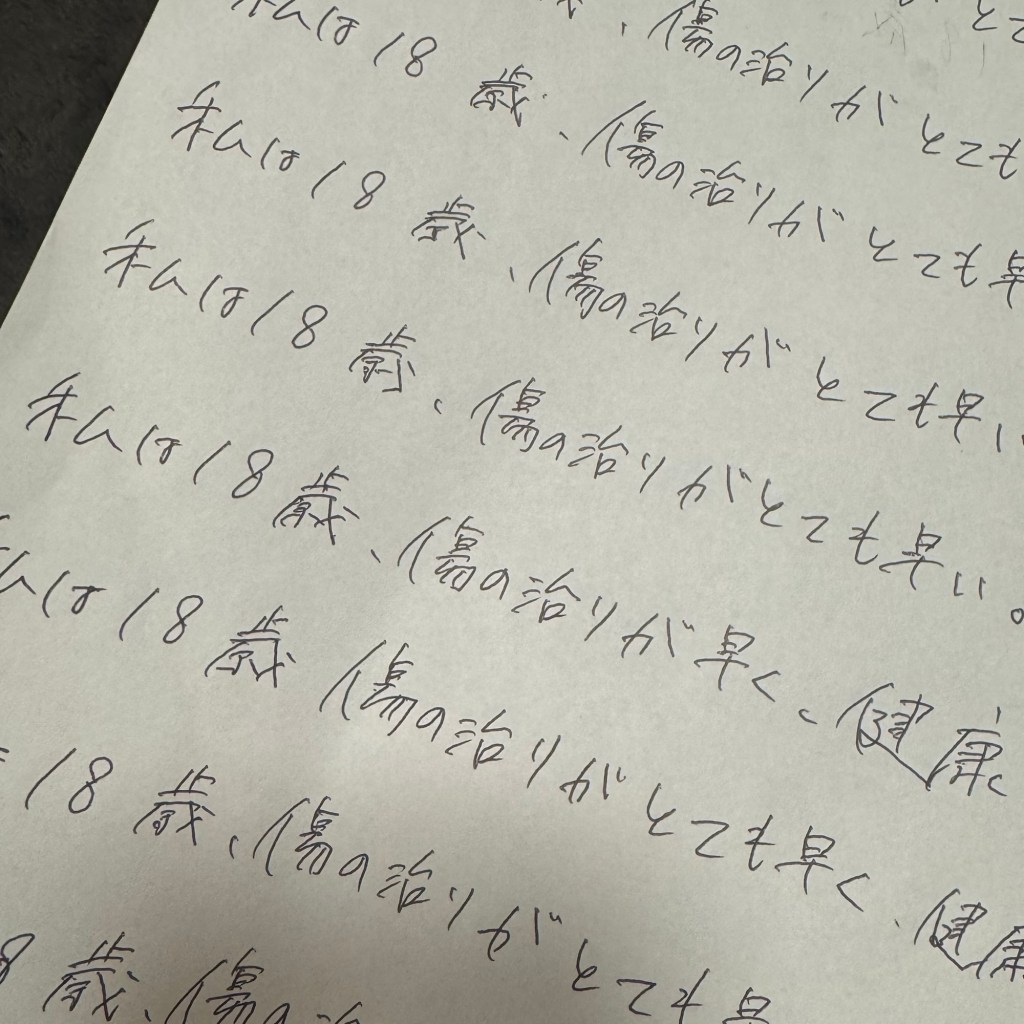 、傷の治りがとて
私は18歳、傷の治りがとても
私は18歳、傷の治りがとても早
私は18歳、傷の治りがとても早い
私は18歳、傷の治りがとても早い。
私は18歳、傷の治りが早く、健康
は18歳 傷の治りがとても早く、健康
18歳、傷の治りがとても早
8歳、傷の治